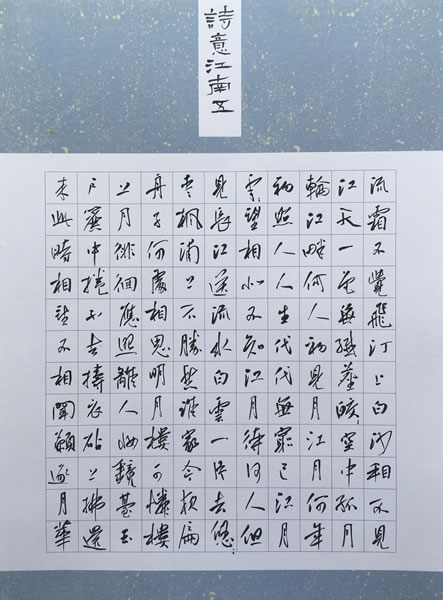 詩意江南五
流霜不覺飛汀上白沙看不見
江天一色無纖塵皎〻空中孤月
輪江畔何人初見月江月何年
初照人人生代代無窮已江月
年〻望相似不知江月待何人但
見長江送流水白雲一片去悠〻
青楓浦上不勝愁誰家今夜扁
舟子何處相思明月樓可憐樓
上月徘徊應照離人妝鏡臺玉
戶簾中捲不去擣衣砧上拂還
來此時相望不相聞願逐月華